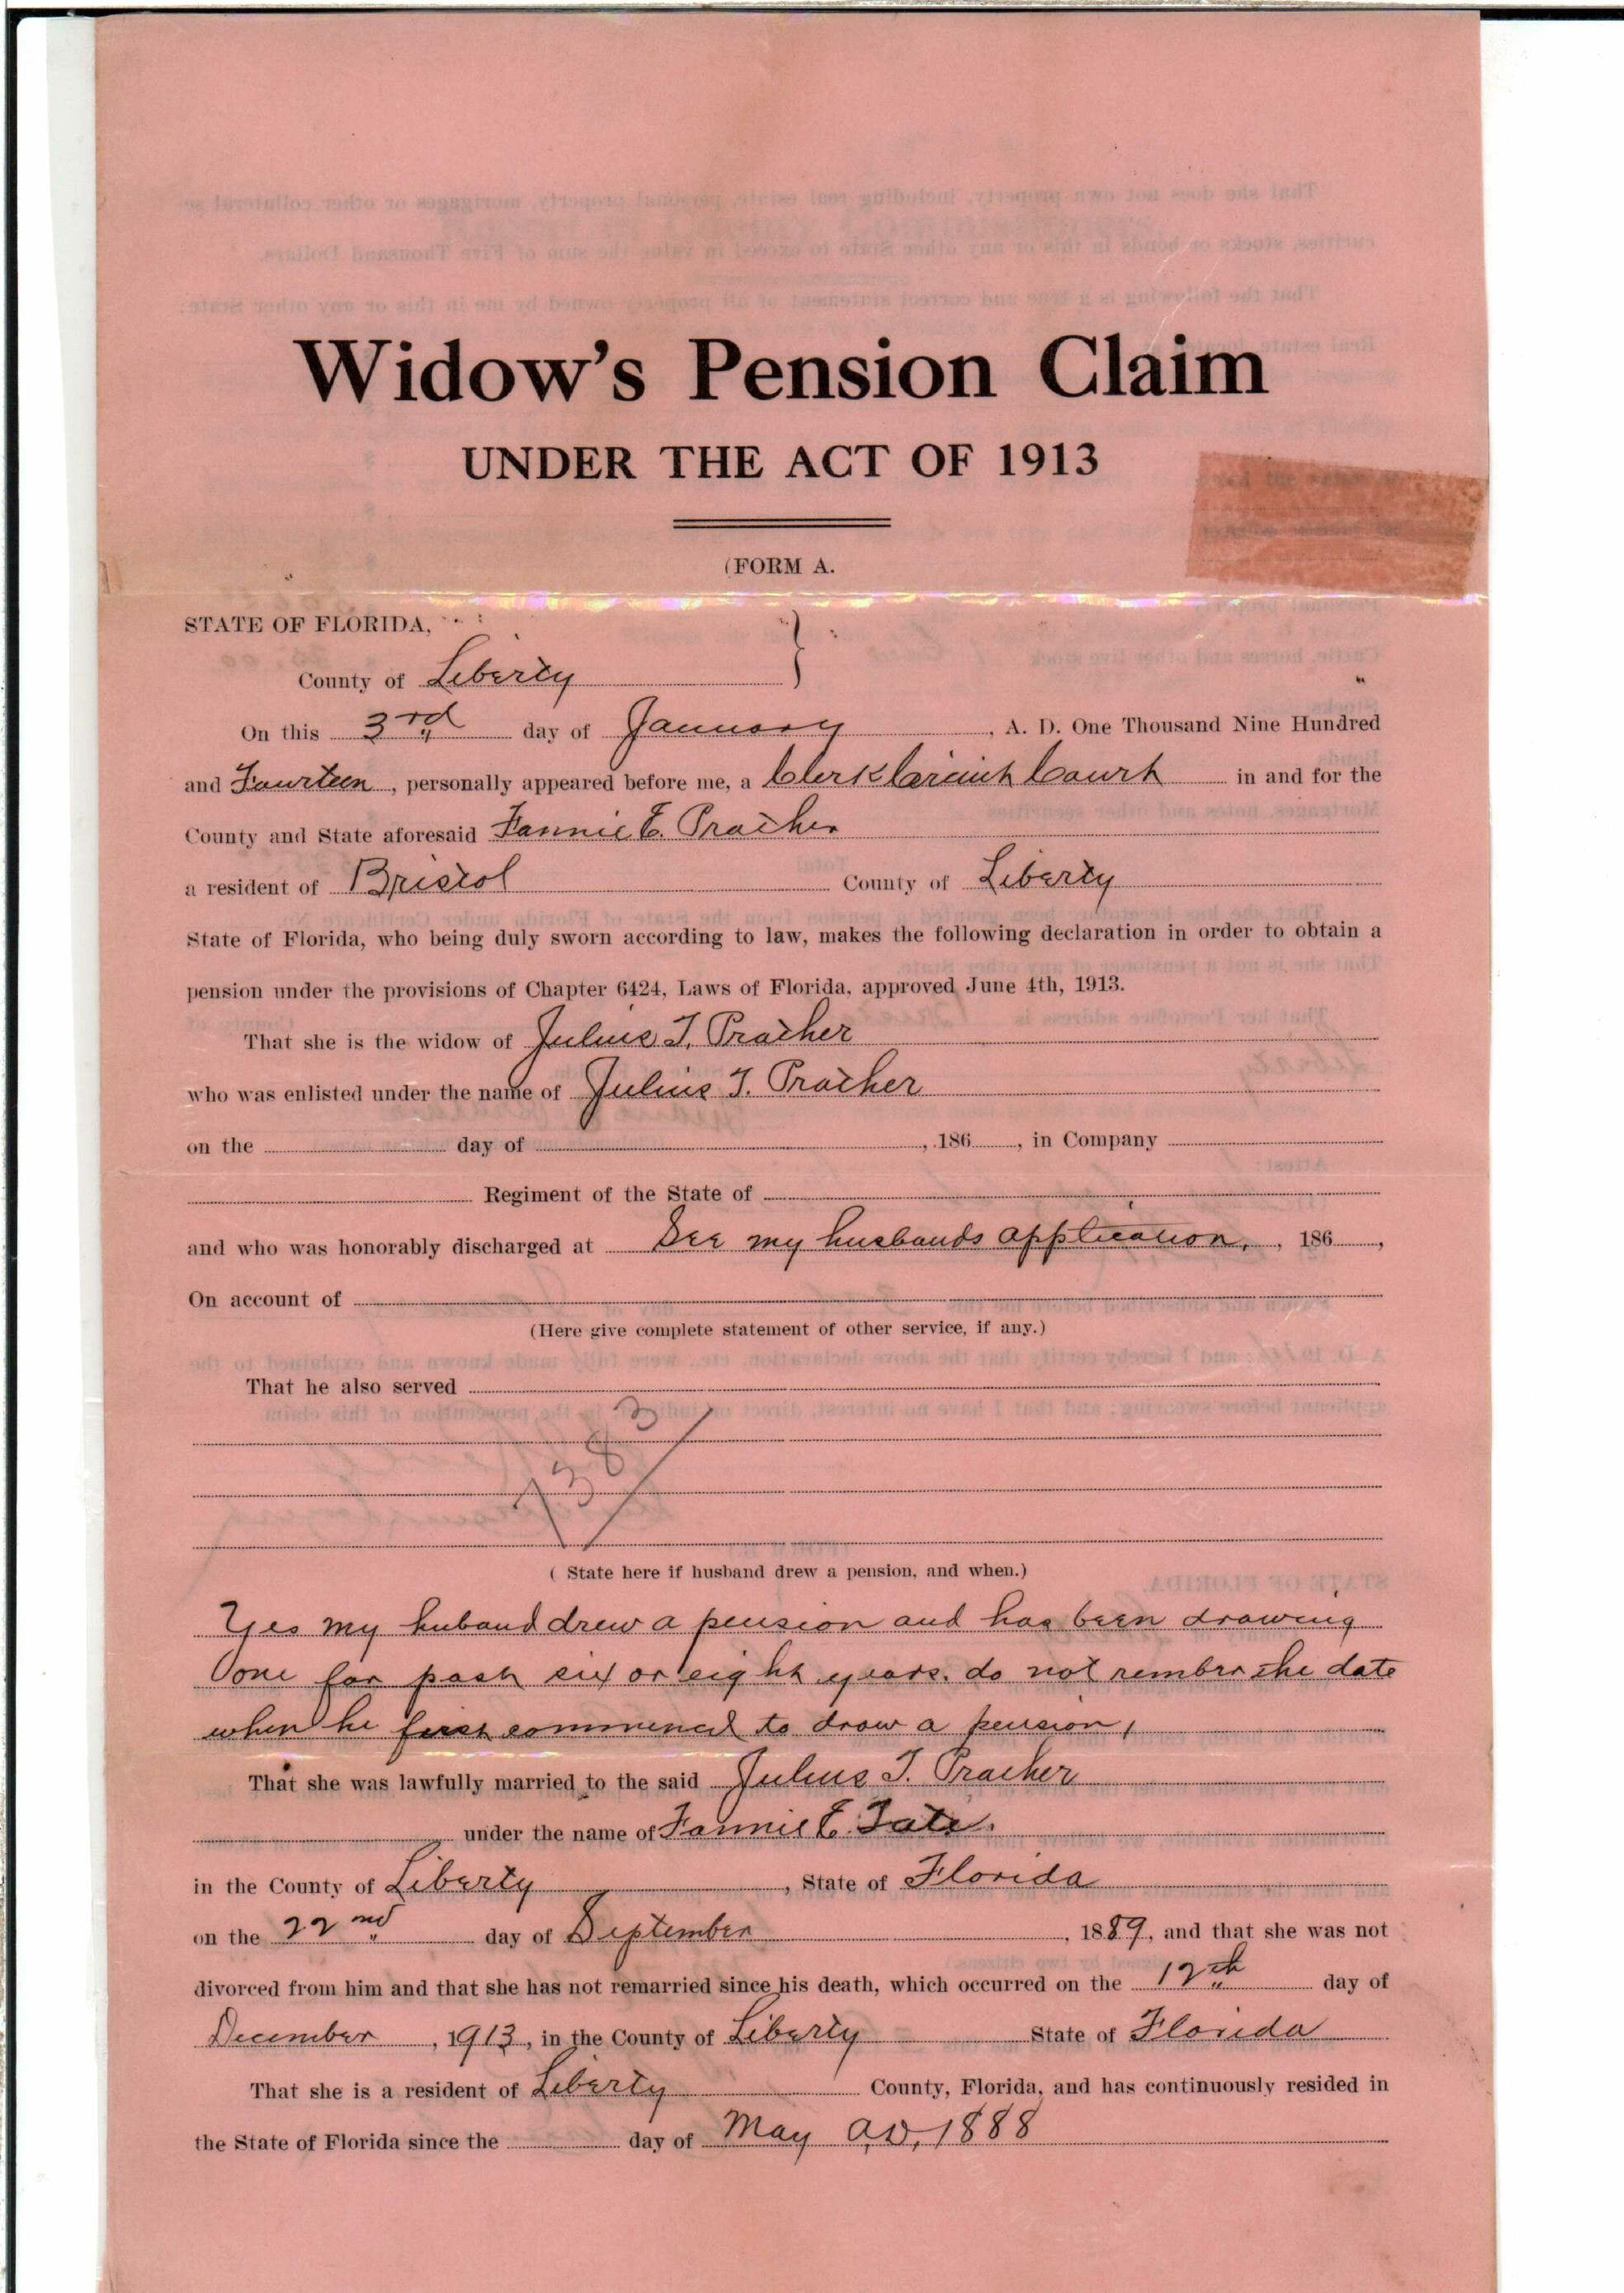 Widow's Pension Claim
UNDER THE ACT OF 1913
(FORM A.
STATE OF FLORIDA,
County of Liberty
On this 3rd day of January, A. D. One Thousand Nine Hundred
and Fourteen, personally appeared before me, a Clerk Circuit Court in and for the
County and State aforesaid Fannie E. Prather
a resident of Bristol County of Liberty
State of Florida, who being duly sworn according to law, makes the following declaration in order to obtain a
pension under the provisions of Chapter 6424, Laws of Florida, approved June 4th, 1913.
That she is the widow of Julius T. Prather
who was enlisted under the name of Julius T. Prather
on the day of , 186 , in Company
Regiment of the State of
and who was honorably discharged at See my husbands application, , 186 ,
On account of
(Here give complete statement of other service, if any.)
That he also served
7383
( State here if husband drew a pension, and when.)
Yes my huband drew a pension and has been drawing
one for past six or eight years. do not rembr the date
when he first commenced to draw a pension,
That she was lawfully married to the said Julius T. Prather
under the name of Fannie E. Tate.
in the County of Liberty, State of Florida
on the 22nd day of September, 1889, and that she was not
divorced from him and that she has not remarried since his death, which occurred on the 12th day of
December, 1913, in the County of Liberty State of Florida
That she is a resident of Liberty County, Florida, and has continuously resided in
the State of Florida since the day of May A.D. 1888